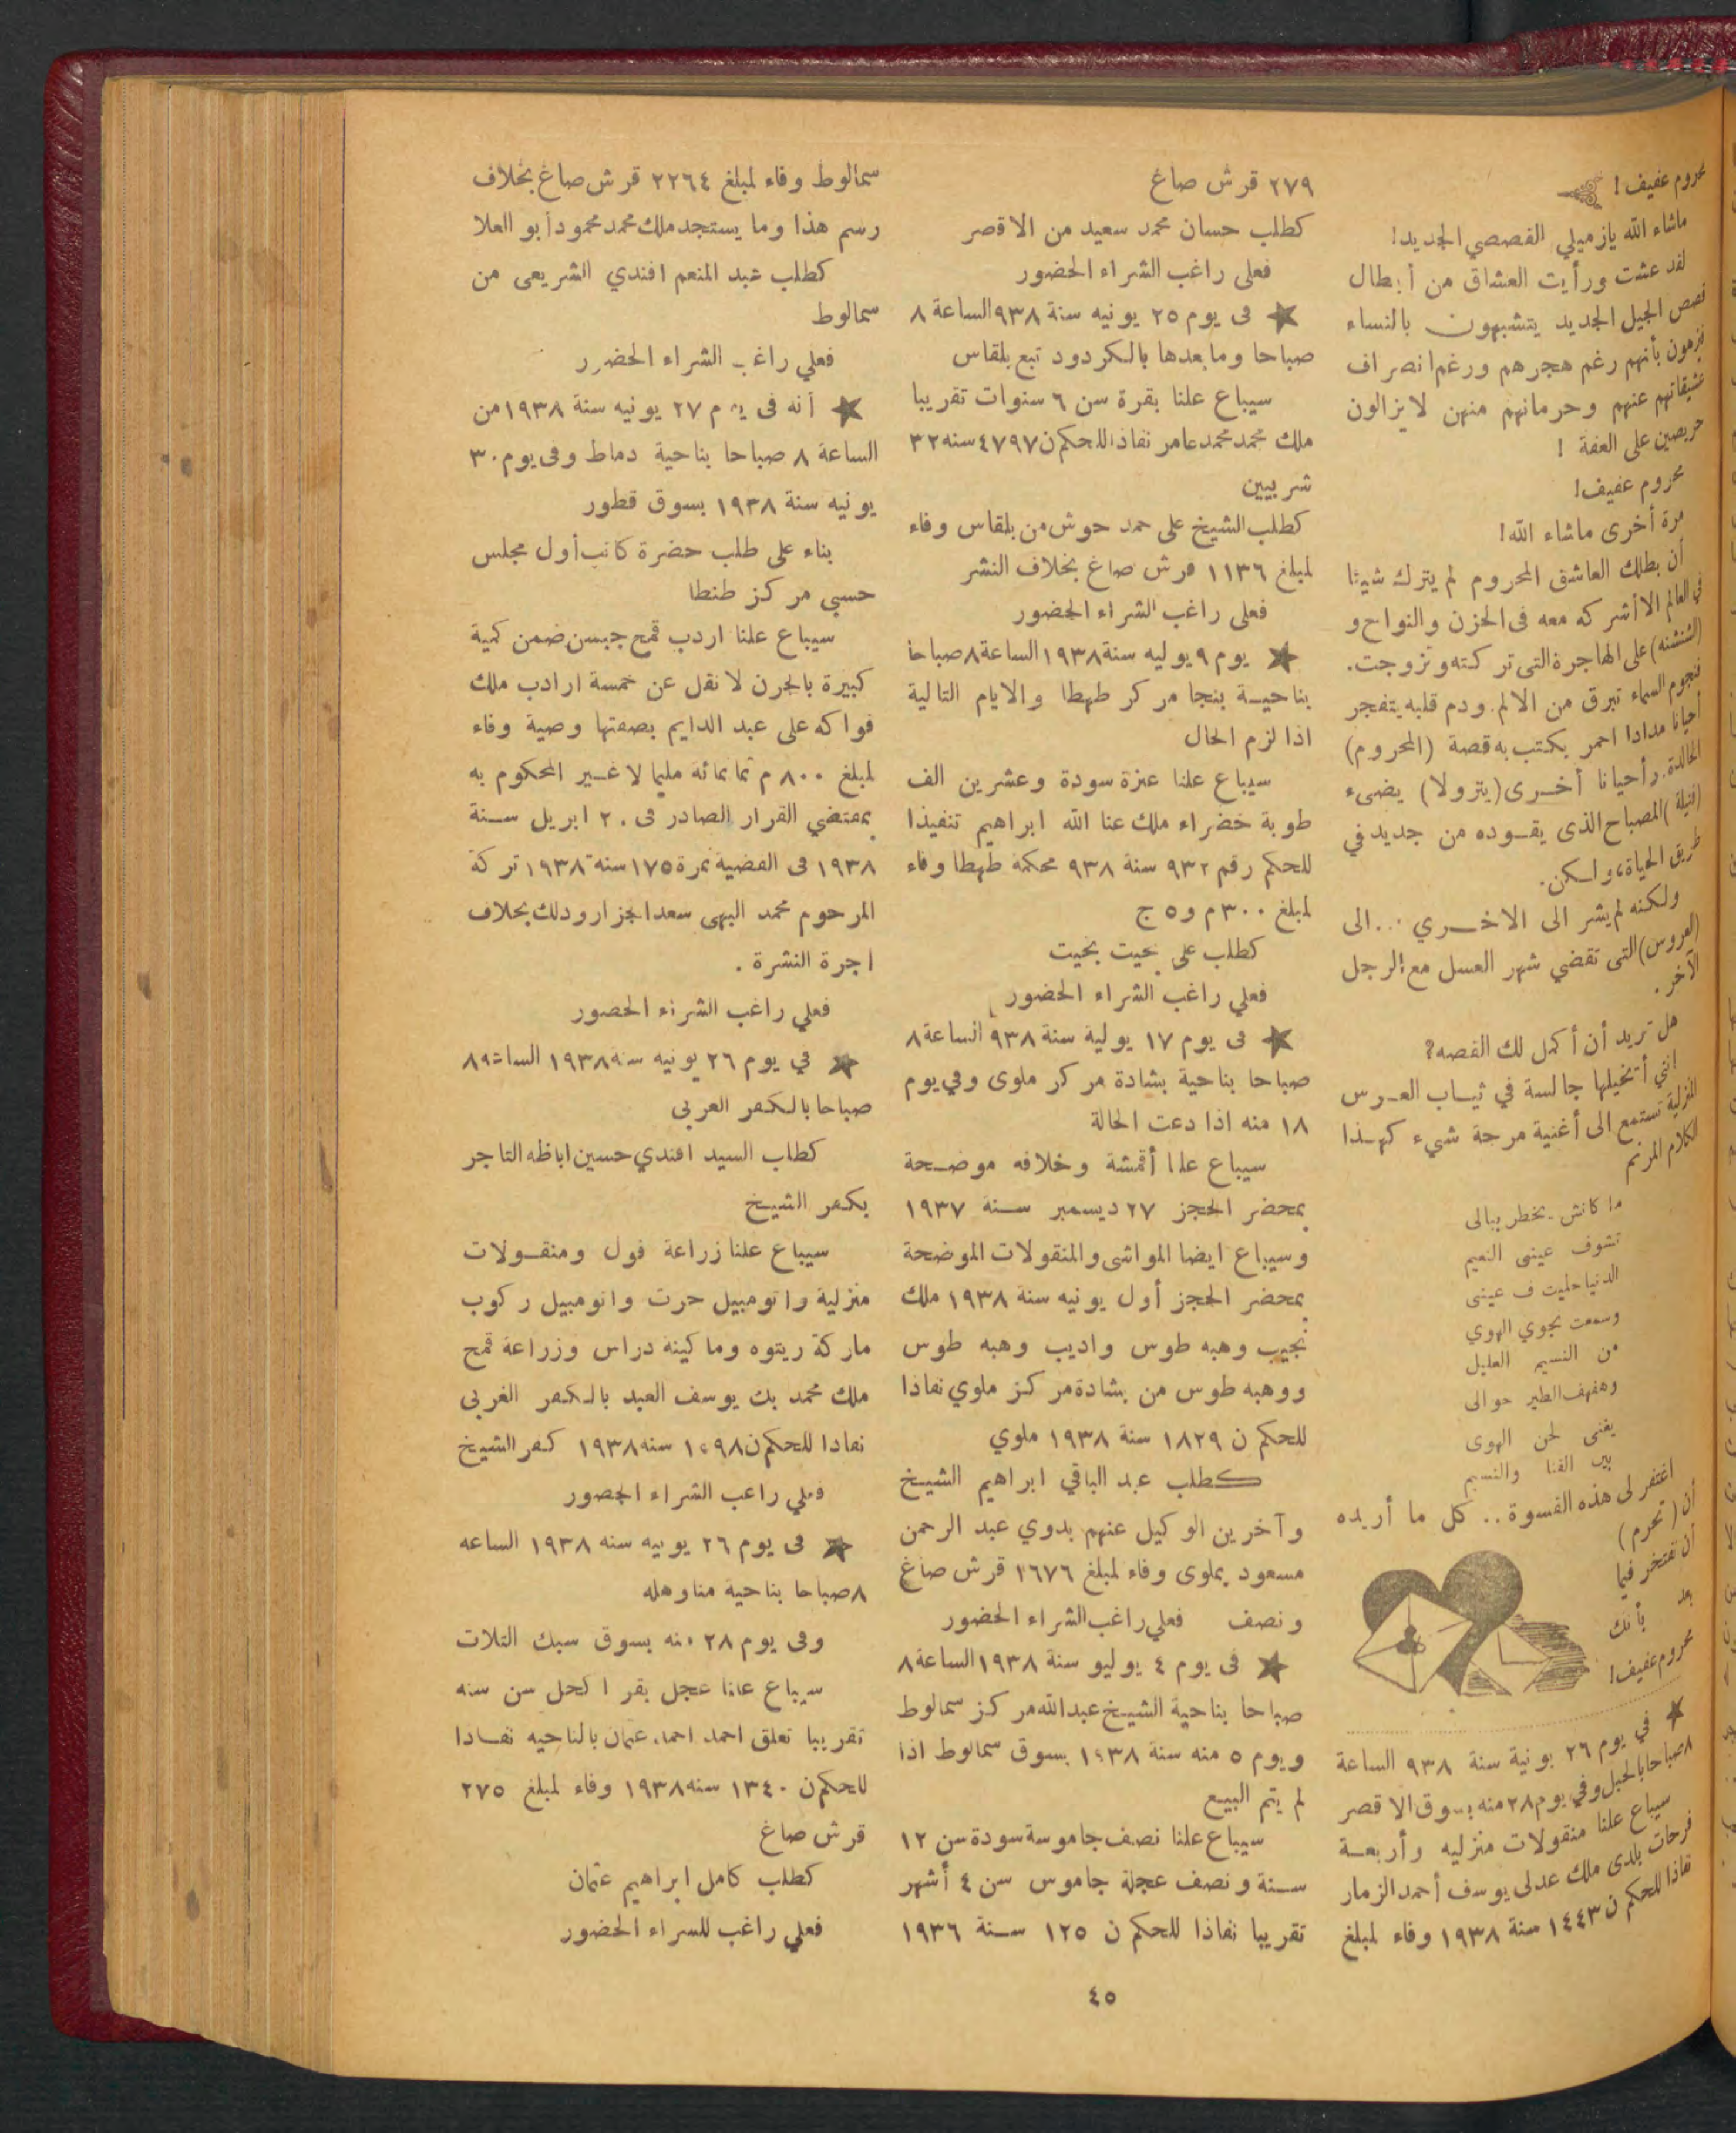 محروم عفيف !
ماشاء الله يازميلي القصصي الجديد !
لقد عشت ورأيت العشاق من أبطال
قصص الجيل الجديد يتشبهون بالنساء
فيزعمون بأنهم رغم هجرهم ورغم انصراف
عشيقاتهم عنهم وحرمانهم منهن لايزالون
حريصين على العفة !
محروم عفيف !
مرة أخرى ماشاء الله !
أن بطلك العاشق المحروم لم يترك شيئا
في العالم الا أشركه معه فى الحزن والنواح و
(الشنشنه) على الهاجرة التى تركته وتزوجت .
فنجوم السماء تبرق من الالم . ودم قلبه يتفجر
أحيانا مدادا احمر يكتب به قصة (المحروم)
الخالدة . وأحيانا أخرى (بترولا) يضىء
(فتيلة) المصباح الذى يقوده من جديد في
طريق الحياة ، ولكن .
ولكنه لم يشر الى الاخري ... الى
(العروس) التى تقضي شهر العسل مع الرجل
الآخر .
هل تريد أن أكمل لك القصه ?
انني أتخيلها جالسة في ثياب العرس
المنزلية تستمع الى أغنية مرحة شيء كهذا
الكلام المرنم
ما كانش يخطر ببالى
تشوف عينى النعيم
الدنيا حليت ف عينى
وسمعت نجوي الهوي
من النسيم العليل
وهفهف الطير حوالى
يغنى لحن الهوى
بين القنا والنسيم
اغتفر لى هذه القسوة .. كل ما أريده
أن (تحرم)
أن تفتخر فيما
بعد بأنك
محروم عفيف !
★ في يوم ٢٦ يونية سنة ٩٣٨ الساعة
٨ صباحا بالحبل وفي يوم ٢٨ منه بسوق الاقصر
سيباع علنا منقولات منزليه وأربعة
فرحات بلدى ملك عدلى يوسف أحمد الزمار
نفاذا للحكم ن ١٤٤٣ سنة ١٩٣٨ وفاء لمبلغ
٢٧٩ قرش صاغ
كطلب حسان محمد سعيد من الاقصر
فعلى راغب الشراء الحضور
★ فى يوم ٢٥ يونيه سنة ٩٣٨ الساعة ٨
صباحا ومابعدها بالكردود تبع بلقاس
سيباع علنا بقرة سن ٦ سنوات تقريبا
ملك محمد محمد عامر نفاذا للحكم ن ٤٧٩٧ سنه ٣٢
شربيين
كطلب الشيخ على حمد حوش من بلقاس وفاء
لمبلغ ١١٣٦ قرش صاغ بخلاف النشر
فعلى راغب الشراء الحضور
★ يوم ٩ يوليه سنة ١٩٣٨ الساعة ٨ صباحا
بناحية بنجا مركز طهطا والايام التالية
اذا لزم الحال
سيباع علنا عنزة سودة وعشرين الف
طوبة خضراء ملك عنا الله ابراهيم تنفيذا
للحكم رقم ٩٣٢ سنة ٩٣٨ محكمة طهطا وفاء
لمبلغ ٣٠٠ م و٥ ج
كطلب على بخيت بخيت
فعلي راغب الشراء الحضور
★ فى يوم ١٧ يولية سنة ٩٣٨ الساعة ٨
صباحا بناحية بشادة مركز ملوى وفي يوم
١٨ منه اذا دعت الحالة
سيباع علنا أقمشة وخلافه موضحة
بمحضر الحجز ٢٧ ديسمبر سنة ١٩٣٧
وسيباع ايضا المواشى والمنقولات الموضحة
بمحضر الحجز أول يونيه سنة ١٩٣٨ ملك
نجيب وهبه طوس واديب وهبه طوس
ووهبه طوس من بشادة مركز ملوي نفاذا
للحكم ن ١٨٢٩ سنة ١٩٣٨ ملوي
كطلب عبد الباقي ابراهيم الشيخ
وآخرين الوكيل عنهم بدوي عبد الرحمن
مسعود بملوى وفاء لمبلغ ١٦٧٦ قرش صاغ
ونصف فعلي راغب الشراء الحضور
★ فى يوم ٤ يوليو سنة ١٩٣٨ الساعة ٨
صباحا بناحية الشيخ عبدالله مركز سمالوط
ويوم ٥ منه سنة ١٩٣٨ بسوق سمالوط اذا
لم يتم البيع
سيباع علنا نصف جاموسة سودة سن ١٢
سنة ونصف عجلة جاموس سن ٤ أشهر
تقريبا نفاذا للحكم ن ١٢٥ سنة ١٩٣٦
سمالوط وفاء لمبلغ ٢٢٦٤ قرش صاغ بخلاف
رسم هذا وما يستجد ملك محمد محمود ابو العلا
كطلب عبد المنعم افندي الشريعى من
سمالوط
فعلي راغب الشراء الحضور
★ أنه فى يوم ٢٧ يونيه سنة ١٩٣٨ من
الساعة ٨ صباحا بناحية دماط وفى يوم ٣٠
يونيه سنة ١٩٣٨ بسوق قطور
بناء على طلب حضرة كاتب أول مجلس
حسبي مركز طنطا
سيباع علنا اردب قمح جبسن ضمن كمية
كبيرة بالجرن لا تقل عن خمسة ارادب ملك
فواكه على عبد الدايم بصفتها وصية وفاء
لمبلغ ٨٠٠ م ثمانمائة مليما لا غير المحكوم به
بمقتضي القرار الصادر فى ٢٠ ابريل سنة
١٩٣٨ فى القضية نمرة ١٧٥ سنة ١٩٣٨ تركة
المرحوم محمد البهى سعد الجزار وذلك بخلاف
اجرة النشرة .
فعلي راغب الشراء الحضور
★ في يوم ٢٦ يونيه سنه ١٩٣٨ الساعه ٨
صباحا بالكفر الغربى
كطلب السيد افندي حسين اباظه التاجر
بكفر الشيخ
سيباع علنا زراعة فول ومنقولات
منزلية واتومبيل حرت واتومبيل ركوب
ماركة ريتوه وماكينة دراس وزراعة قمح
ملك محمد بك يوسف العبد بالكفر الغربى
نفاذا للحكم ن ١٠٩٨ سنه ١٩٣٨ كفر الشيخ
فعلي راغب الشراء الحضور
★ فى يوم ٢٦ يونيه سنه ١٩٣٨ الساعه
٨ صباحا بناحية مناوهله
وفى يوم ٢٨ منه بسوق سبك التلات
سيباع علنا عجل بقر اكحل سن سنه
تقريبا تعلق احمد احمد عثمان بالناحيه نفاذا
للحكم ن ١٣٤٠ سنه ١٩٣٨ وفاء لمبلغ ٢٧٥
قرش صاغ
كطلب كامل ابراهيم عثمان
فعلي راغب للشراء الحضور
٤٥